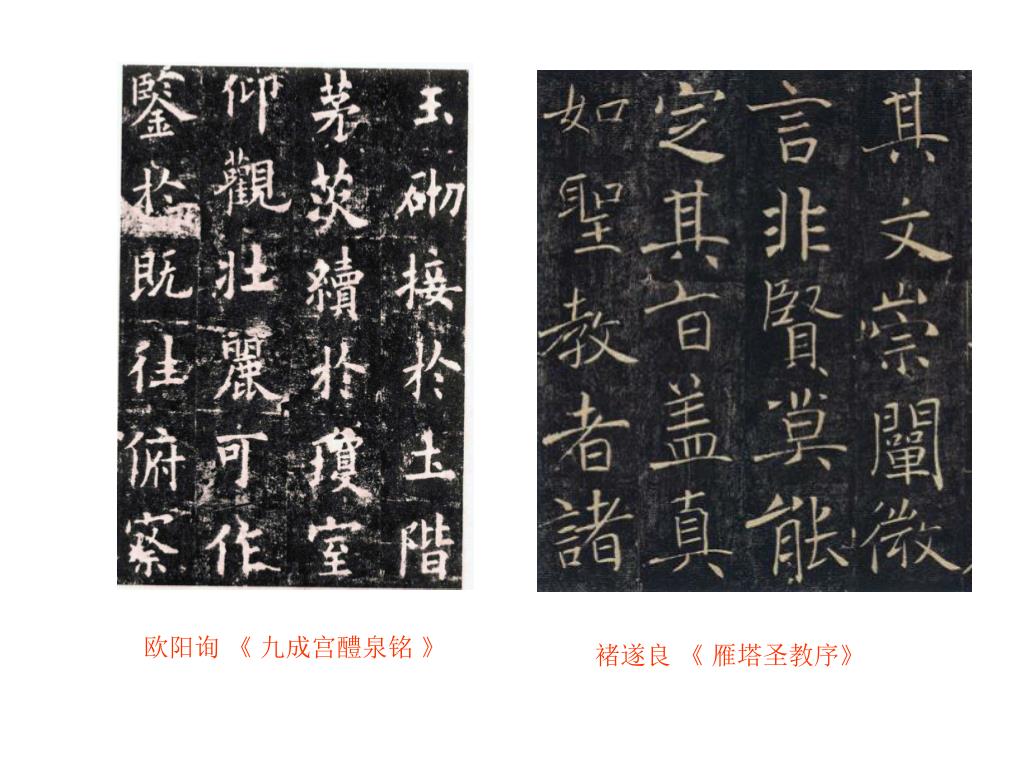 玉砌接於土階
茅茨續於瓊室
仰觀壮麗可作
鑒於既往俯察
其文崇闡微
言非賢莫能
定其旨盖真
如聖教者諸
欧阳询 《 九成宫醴泉铭 》
褚遂良 《 雁塔圣教序》